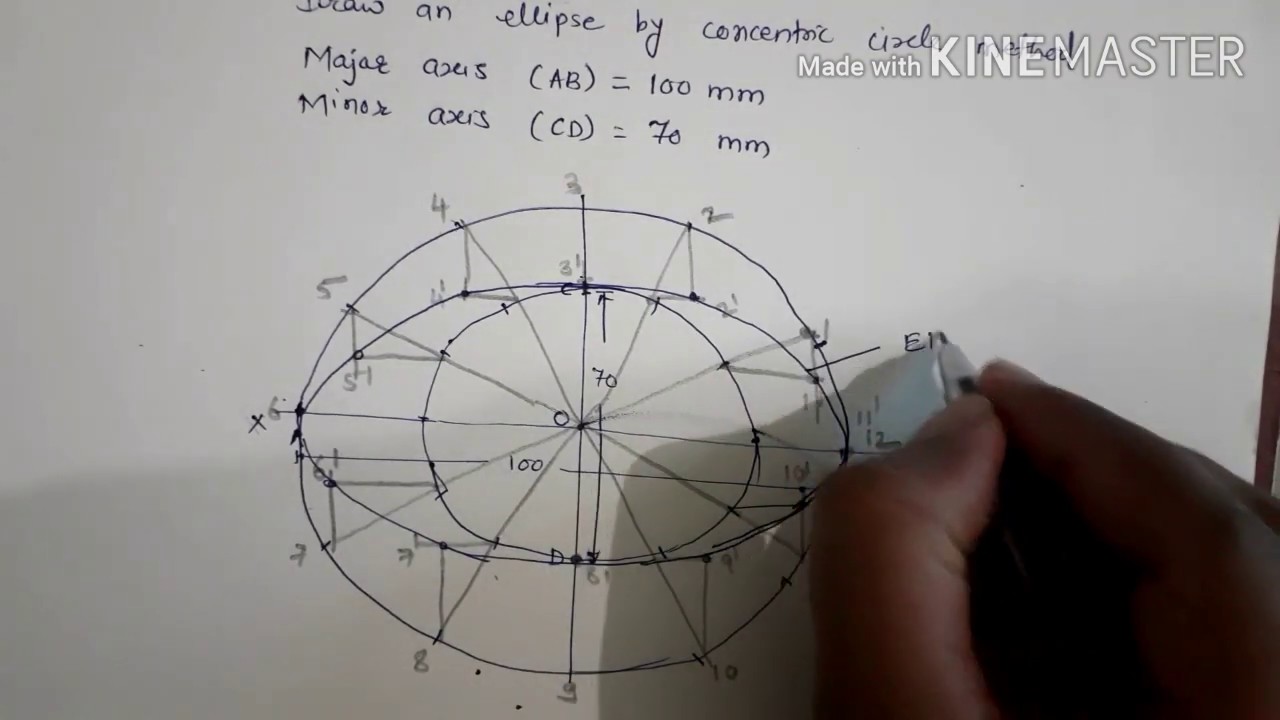 Draw an ellipse by concentric circle method
Majar axis (AB) = 100 mm
Minor axis (CD) = 70 mm
Made with KINEMASTER
3
4
2
5
3'
1
4'
C
2'
Ell
5'
70
1'
X
6
O
11'
12
A
100
6'
10'
7
7'
D
8'
9'
8
10
9